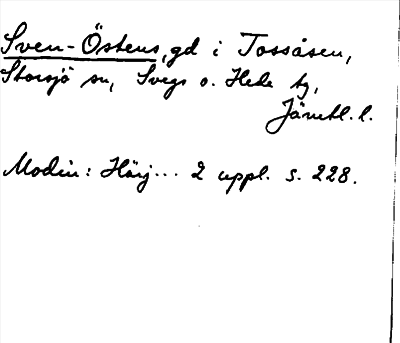 Sven-Östens, gd i Tossåsen,
Storsjö sn, Svegs o. Hede tg,
Jämtl. l.
Modin: Härj... 2 uppl. s. 228.